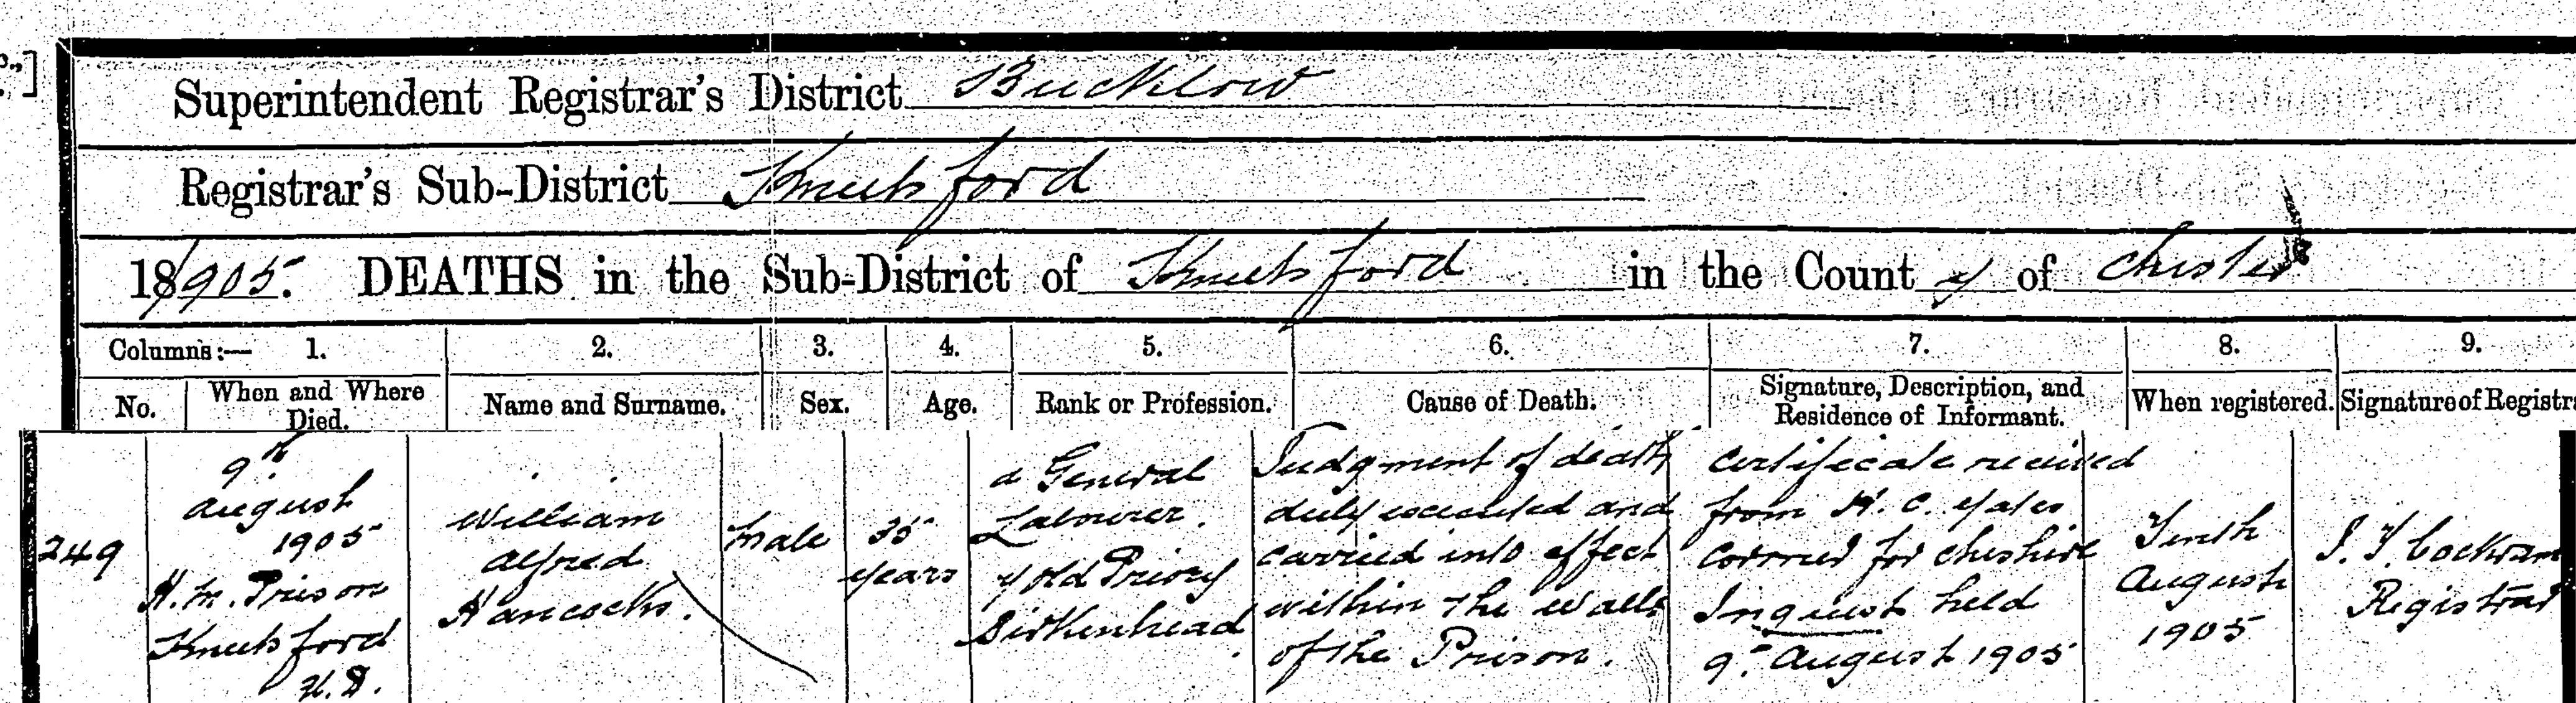 Superintendent Registrar's District Bucklow
Registrar's Sub-District Knutsford
18/905. DEATHS in the Sub-District of Knutsford in the County of Chester
Columns:— 1. 2. 3. 4. 5. 6. 7. 8. 9.
No. When and Where Died. Name and Surname. Sex. Age. Rank or Profession. Cause of Death. Signature, Description, and Residence of Informant. When registered. Signature of Registr
249
9th
August
1905
H.M. Prison
Knutsford
U.D.
William
Alfred
Hancocks.
Male
35
years
a General
Labourer.
of Old Priory
Birkenhead.
Judgment of death
duly executed and
carried into effect
within the walls
of the Prison.
Certificate received
from H. C. Yates
Coroner for Cheshire
Inquest held
9th August 1905
Tenth
August
1905
Registrar